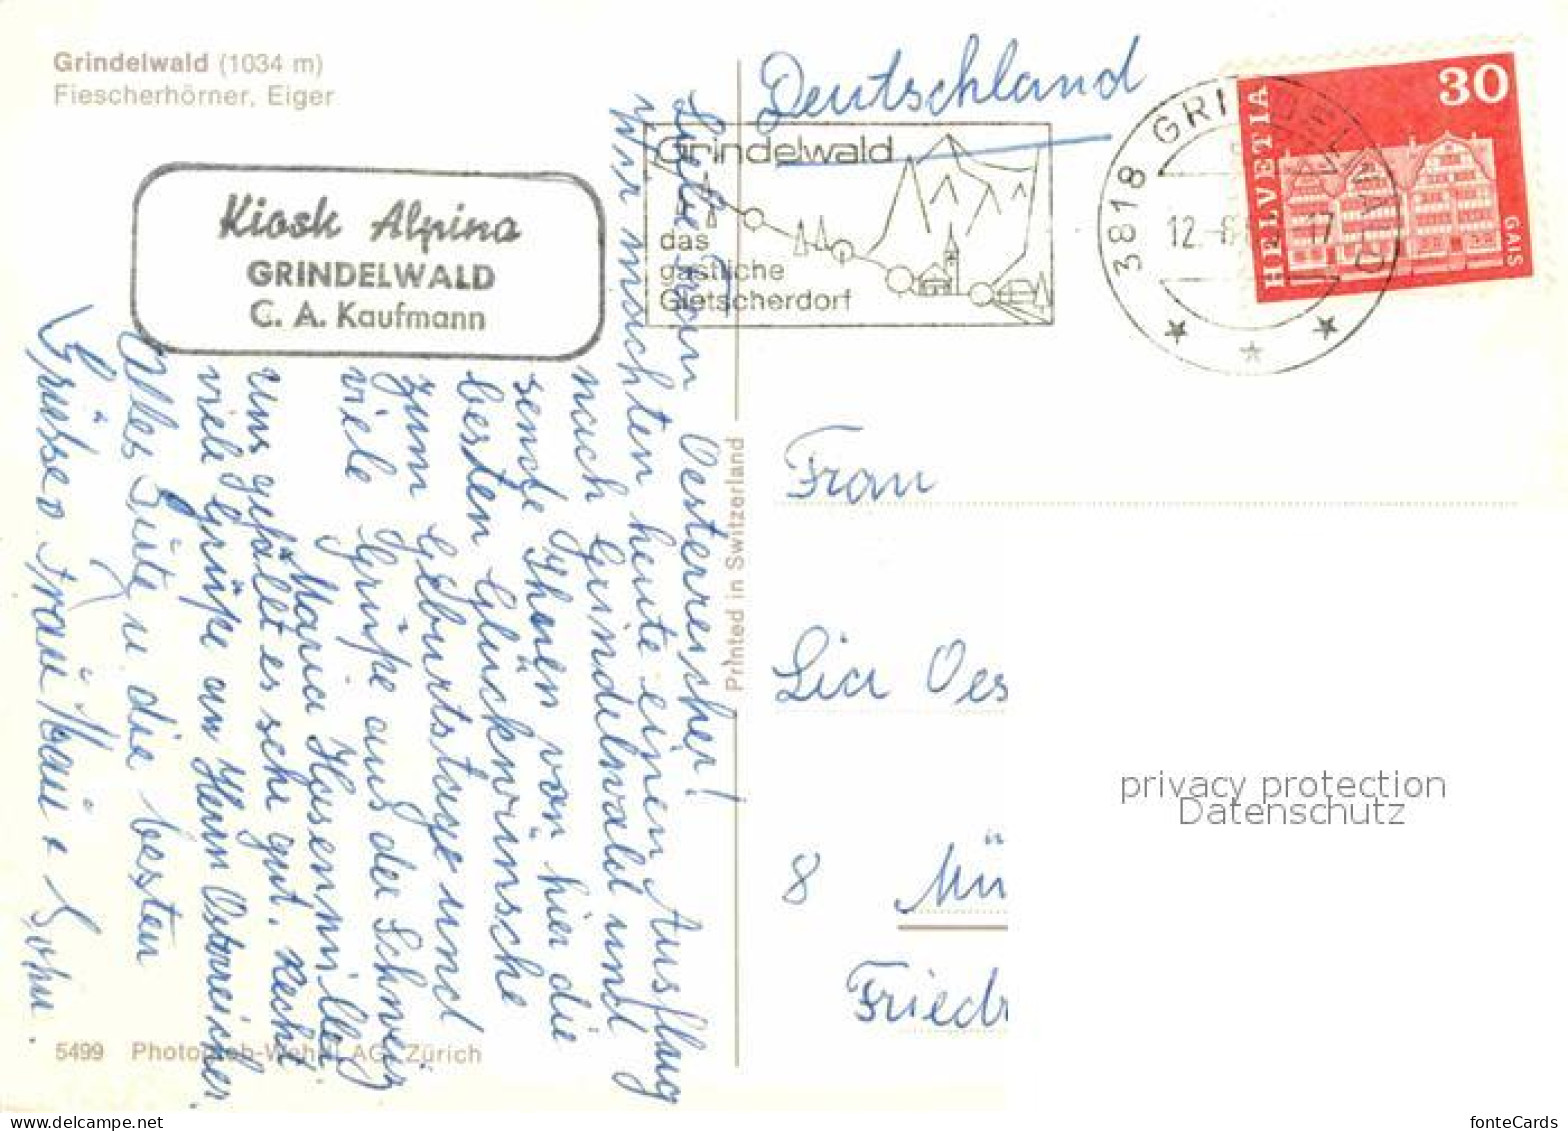 Grindelwald (1034 m)
Fiescherhörner, Eiger
Kiosk Alpina
GRINDELWALD
C. A. Kaufmann
Liebe Frau Oesterreicher!
Wir machten heute einen Ausflug
nach Grindelwald und
sende Ihnen von hier die
besten Glückwünsche
zum Geburtstage und
viele Grüße aus der Schweiz
Maria Hasenmiller
uns gefällt es sehr gut. Recht
viele Grüße an Herrn Osterreicher.
Alles Gute u. die besten
Grüsse v. Frau + Sohn.
5499 Photoglob-Wehrli AG, Zürich
Printed in Switzerland
Deutschland
Grindelwald
das
gastliche
Gletscherdorf
3818 GRINDELWALD
12.-6 17
HELVETIA
30
GAIS
Frau
Lia Oes
8 Mü
Friedr
privacy protection
Datenschutz
fonteCards